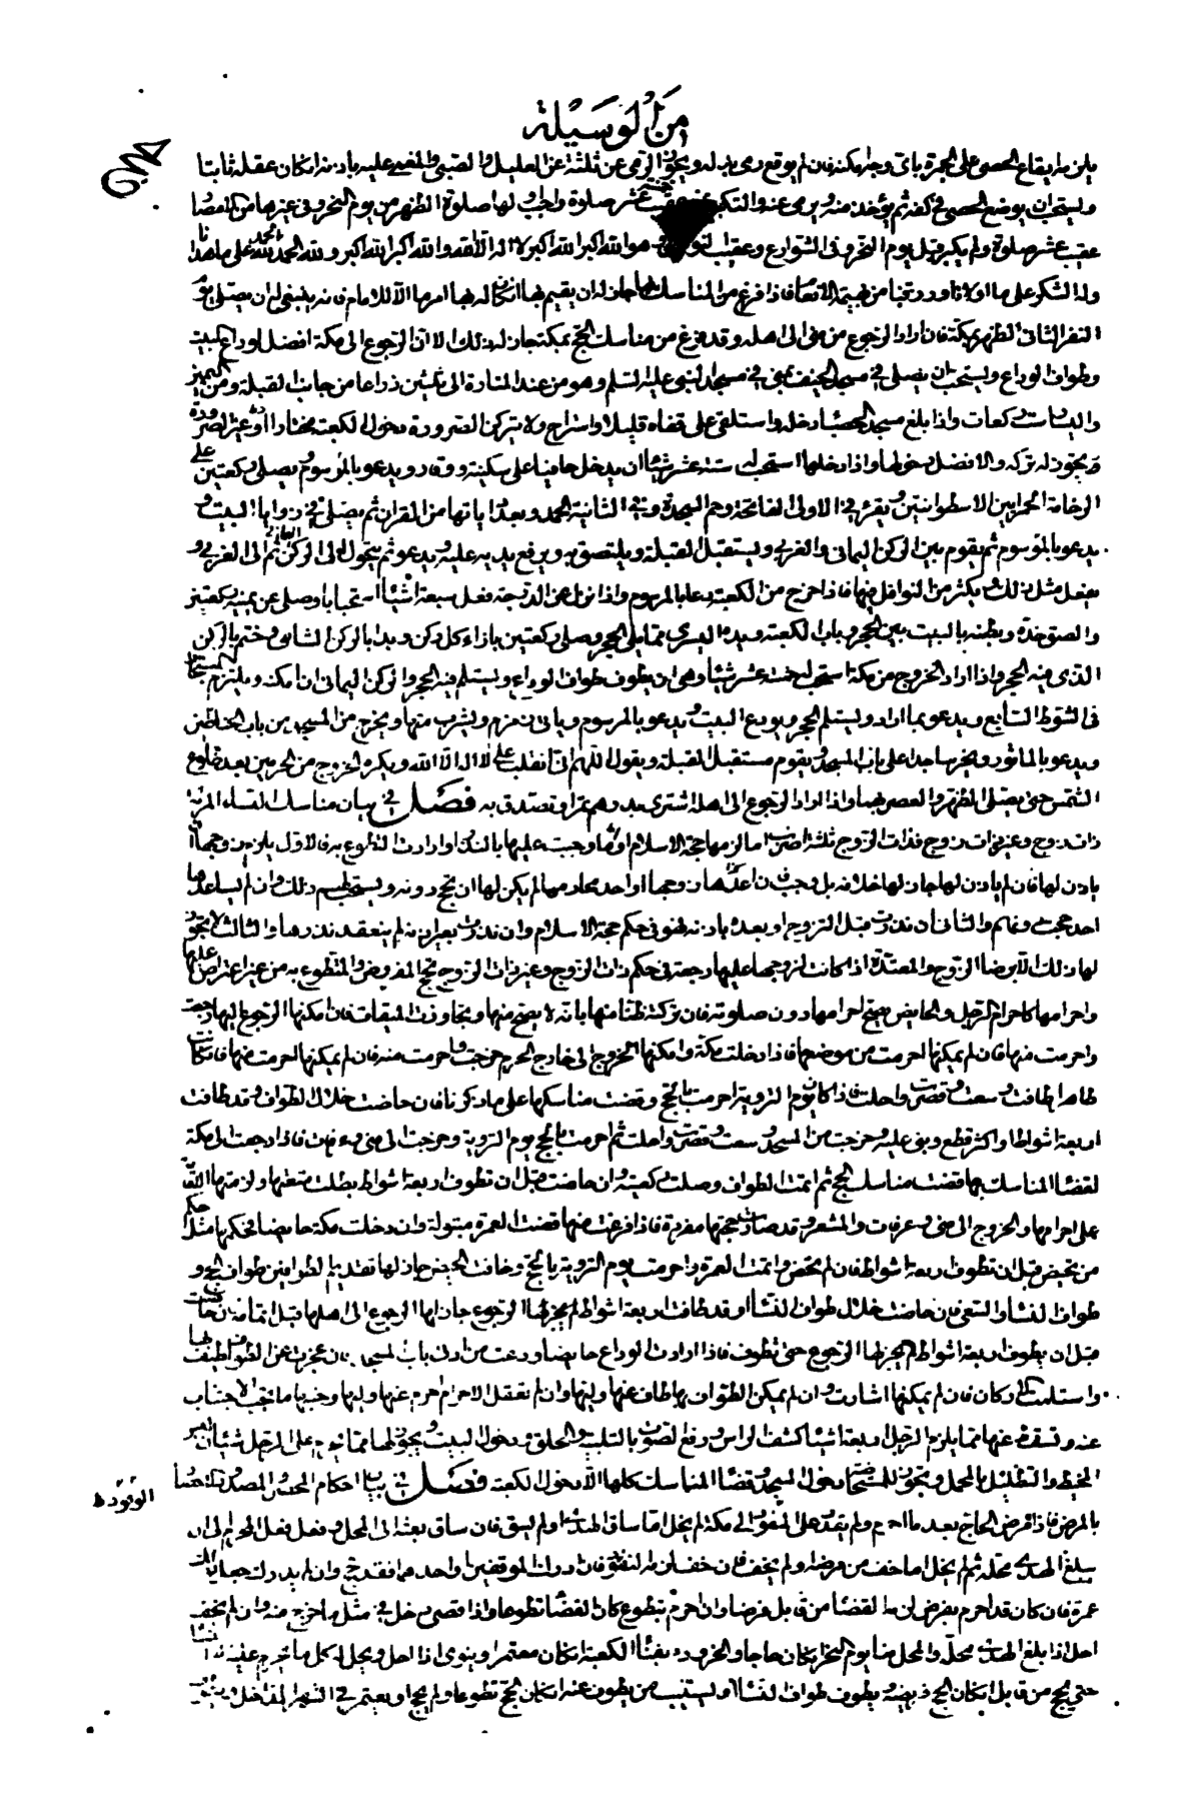 من الوسيلة
يلزمه ايقاع الحصى على الجمرة باى وجه امكنه فان لم يوقع رمى بدله ويجوز الرمى عن ثلثة عن العليل والصبى والمغمى عليه باذنه ان كان عقله ثابتا
ويستحب ان يوضع الحصى فى كفه ثم يؤخذ منه ويرمى عنه والتكبير عقيب خمس عشر صلوة واجب اولها صلوة الظهر من يوم النحر وفى غيرها من الامصار
عقيب عشر صلوة ولم يكبر قبل يوم النحر فى الشوارع وعقيب النوافل وهو الله اكبر الله اكبر لا اله الا الله والله اكبر الله اكبر ولله الحمد الحمد لله على ما هدانا
وله الشكر على ما اولانا ورزقنا من بهيمة الانعام فاذا فرغ من المناسك جاز له ان يقيم بها ان كان له بها امر ما الا للامام فانه ينبغى له ان يصلى يوم
النفر الثانى الظهر بمكة فان اراد الرجوع من منى الى اهله وقد فرغ من مناسك الحج بمكة جاز له ذلك الا ان الرجوع الى مكة افضل لوداع البيت
وطواف الوداع ويستحب ان يصلى فى مسجد الخيف بمنى فى مسجد النبى عليه السلم وهو من عند المنارة الى ثلثين ذراعا من جانب القبلة ومن اليمين
واليسار ست ركعات واذا بلغ مسجد الحصباء دخله واستلقى على قفاه قليلا واستراح ولا يتركن الصرورة دخول الكعبة مختارا او غير الصرورة
يجوز له تركه والافضل دخولها واذا دخلها استحب له ستة عشر شيئا ان يدخل حافيا على سكينة ووقار ويدعو بالمرسوم ويصلى ركعتين على
الرخامة الحمراء بين الاسطوانتين ويقرء فى الاولى الفاتحة وحم السجدة وفى الثانية الحمد وبعدد اياتها من القران ثم يصلى فى زوايا البيت و
يدعو بالمرسوم ثم يقوم بين الركن اليمانى والغربى ويستقبل القبلة ويلتصق به ويرفع يديه عليه ويدعو ثم يتحول الى الركن اليمانى ثم الى الغربى و
يفعل مثل ذلك ثم يكثر من النوافل فيها فاذا خرج من الكعبة دعا بالمرسوم واذا نزل عن الدرجة فعل سبعة اشياء استحبابا وصلى عن يمينه ركعتين
والصق خده وبطنه بالبيت بين الحجر وباب الكعبة ويده اليسرى مما يلى الحجر وصلى ركعتين بازاء كل ركن وبدأ بالركن الشامى وختم بالركن
الذى فيه الحجر واذا اراد الخروج من مكة استحب له خمسة عشر شيئا وهى ان يطوف طواف الوداع ويستلم فيه الحجر والركن اليمانى ان امكنه ويلتزم المستجار
فى الشوط السابع ويدعو بما اراد ويستلم الحجر ويودع البيت ويدعو بالمرسوم وياتى زمزم ويشرب منها ويخرج من المسجد من باب الحناطين
ويدعو بالماثور ويخر ساجدا على باب المسجد ويقوم مستقبل القبلة ويقول اللهم انى انقلب على لا اله الا الله ويكره الخروج من الحرمين بعد طلوع
الشمس حتى يصلى الظهر والعصر بهما واذا اراد الرجوع الى اهله اشترى بدرهم تمرا وتصدق به فصل فى بيان مناسك النساء المرئة
ذات زوج وغير ذات زوج فذات الزوج ثلثة اضرب اما لزمها حجة الاسلام او وجبت عليها بالنذر او ارادت التطوع به فالاول يلزم زوجها ان
ياذن لها فان لم ياذن لها جاز لها خلافه بل وجب فان ساعدها زوجها او احد محارمها لم يكن لها ان تحج دونه ويستحب لهم ذلك وان لم يساعدها
احد حجت دونهم والثانى ان نذرت قبل التزويج او بعده باذنه فهو فى حكم حجة الاسلام وان نذرت بغير اذنه لم ينعقد نذرها والثالث لا يجوز
لها ذلك الا برضا الزوج والمعتدة اذا كانت لزوجها عليها رجعة فى حكم ذات الزوج وغير ذات الزوج تحج المفروض والمتطوع به من غير اعتراض عليها
واحرامها كاحرام الرجل والحايض يصح احرامها دون صلوته فان تركته ظنا منها بانه لا يصح منها وتجاوزت الميقات فان امكنها الرجوع اليها رجعت
واحرمت منها فان لم يمكنها احرمت من موضعها فاذا دخلت مكة وامكنها الخروج الى خارج الحرم خرجت واحرمت منه فان لم يمكنها احرمت منها فان كانت
طاهرا طافت وسعت وقصرت واحلت فاذا كان يوم التروية احرمت بالحج وقضت مناسكها على ما ذكرنا فان حاضت خلال الطواف وقد طافت
اربعة اشواط او اكثر قطع وبنى عليه وخرجت من المسجد وسعت وقصرت واحلت ثم احرمت بالحج يوم التروية وخرجت الى منى وعرفات فاذا رجعت الى مكة
لقضاء المناسك بها قضت مناسك الحج ثم اتمت الطواف وصلت ركعتيه وان حاضت قبل ان تطوف اربعة اشواط بطلت متعتها ولزمتها البقاء
على احرامها والخروج الى منى وعرفات والمشعر وقد صارت حجتها مفردة فاذا فرغت منها قضت العمرة مبتولة وان دخلت مكة حايضا فحكمها مثل حكم
من تحيض قبل ان تطوف اربعة اشواط فان لم تحض واتمت العمرة واحرمت يوم التروية بالحج وخافت الحيض جاز لها تقديم الطوافين طواف الحج و
طواف النساء والسعى فان حاضت خلال طواف النساء وقد طافت اربعة اشواط لم يجز لها الرجوع جاز لها الرجوع الى اهلها قبل اتمامه فان حاضت
قبل ان يطوف اربعة اشواط لم يجز لها الرجوع حتى تطوف فاذا ارادت الوداع حايضا ودعت من ادنى باب المسجد فان عجزت عن الطواف طيف بها
واستلمت الاركان فان لم يمكنها اشارت وان لم يمكن الطواف بها طاف عنها وليها وان لم تعقل الاحرام احرم عنها وليها وجنبها ما يجب الاجتناب
عنه وتسقط عنها مما يلزم الرجل اربعة اشياء كشف الراس ورفع الصوت بالتلبية والحلق ودخول البيت ويجوز لها مما يحرم على الرجل شيئان لبس
المخيط والتظليل بالمحمل ويجوز للمستحاضة دخول المسجد وقضاء المناسك كلها الا دخول الكعبة فصل فى بيان احكام المحصور والمصدود الاحصار
بالمرض فاذا مرض الحاج بعد ما احرم ولم يقدر على النفوذ الى مكة لم يخل اما ساق الهدى او لم يسق فان ساق بعثه الى المحل وفعل فعل المحرم الى ان
يبلغ الهدى محله ثم لم يخل اما خف من مرضه او لم يخف فان خف لزمه النفوذ فان ادرك الموقفين او احدهما فقد حج وان لم يدرك جعلها
عمرة فان كان قد احرم بفرض لزمه القضاء من قابل فرضا وان احرم بتطوع كان القضاء تطوعا واذا قضى دخل فى مثل ما خرج منه وان لم يخف
احل اذا بلغ الهدى محله والمحل منا يوم النحر ان كان حاجا والحزورة بفناء الكعبة ان كان معتمرا وينوى اذا احل ويحل له كل ما احرم عنه الا النساء
حتى يحج من قابل ان كان الحج فريضة ويطوف طواف النساء او يستنيب من يطوف عنه ان كان الحج تطوعا ولم يحج او يعتمر فى الشهر الداخل